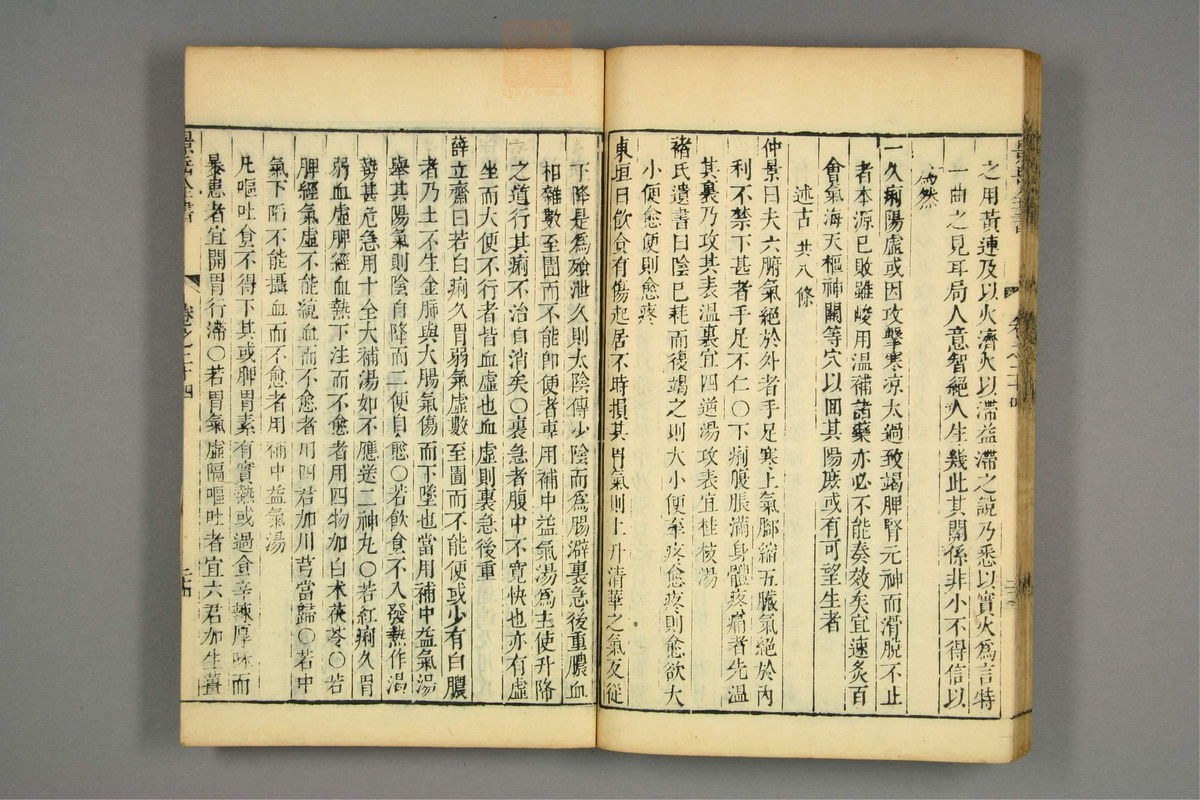 之用黃連及以火濟火以滯益滯之說乃悉以實火爲言特
一曲之見耳局人意智絕人生幾此其關係非小不得信以
爲然
一久痢陽虛或因攻擊寒凉太過致竭脾腎元神而滑脫不止
者本源已敗雖峻用溫補諸藥亦必不能奏效矣宜速灸百
會氣海天樞神闕等穴以回其陽庶或有可望生者
述古 共八條
仲景曰夫六腑氣絕於外者手足寒上氣腳縮五臟氣絕於內
利不禁下甚者手足不仁○下痢腹脹滿身體疼痛者先溫
其裏乃攻其表溫裏宜四逆湯攻表宜桂枝湯
褚氏遺書曰陰已耗而復竭之則大小便牽疼愈疼則愈欲大
小便愈便則愈疼
東垣曰飲食有傷起居不時損其胃氣則上升清華之氣反從
下降是爲飱泄久則太陰傳少陰而爲腸澼裏急後重膿血
相雜數至圊而不能卽便者專用補中益氣湯爲主使升降
之道行其痢不治自消矣○裏急者腹中不寬快也亦有虛
坐而大便不行者皆血虛也血虛則裏急後重
薛立齋曰若白痢久胃弱氣虛數至圊而不能便或少有白膿
者乃土不生金肺與大腸氣傷而下墜也當用補中益氣湯
舉其陽氣則陰自降而二便自愈○若飲食不入發熱作渴
勢甚危急用十全大補湯如不應送二神丸○若紅痢久胃
弱血虛脾經血熱下注而不愈者用四物加白术茯苓○若
脾經氣虛不能統血而不愈者用四君加川芎當歸○若中
氣下陷不能攝血而不愈者用補中益氣湯
凡嘔吐食不得下其或脾胃素有實熱或過食辛辣厚味而
暴患者宜開胃行滯○若胃氣虛隔嘔吐者宜六君加生薑
景岳全書
卷之二十四